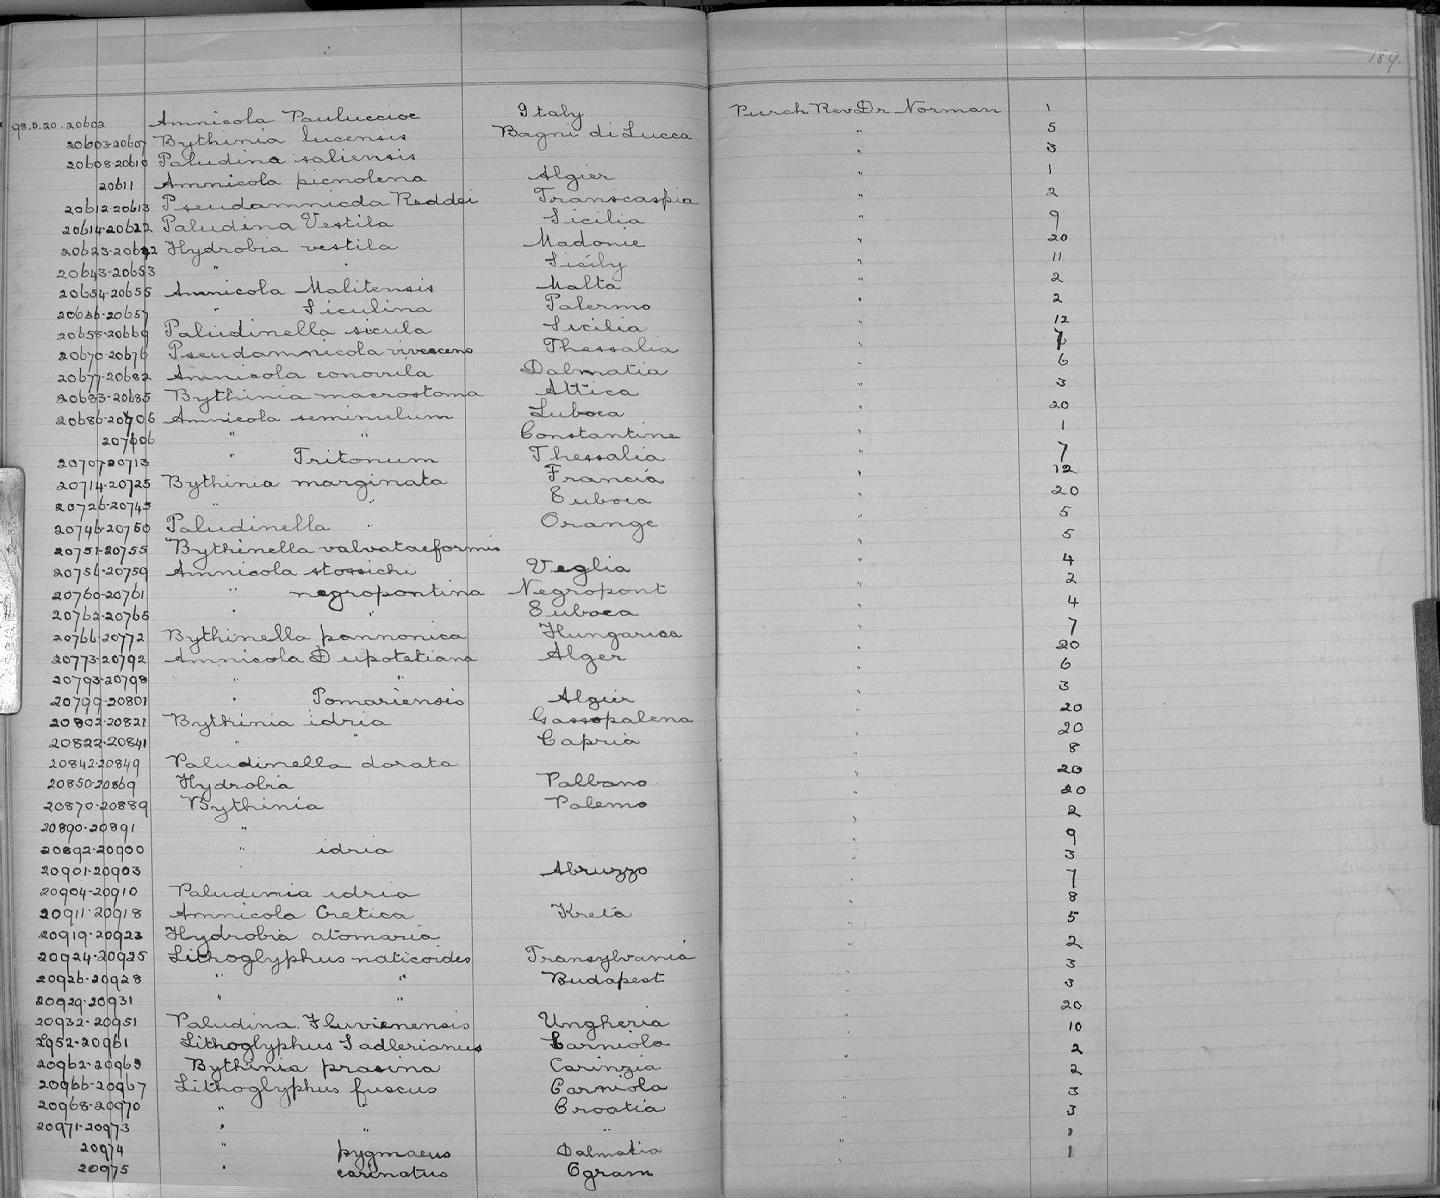 189.
98.5.20.20602 Amnicola Pauluccioe Italy Purch Rev Dr Norman 1
20603-20607 Bythinia lucensis Bagni di Lucca " 5
20608-20610 Paludina saliensis " 3
20611 Amnicola picnolena Algier " 1
20612-20613 Pseudamnicola Raddei Transcaspia " 2
20614-20622 Paludina Vestila Sicilia " 9
20623-20642 Hydrobia vestila Madonie " 20
20643-20653 " " Sicily " 11
20654-20655 Amnicola Malitensis Malta " 2
20656-20657 " Siculina Palermo " 2
20658-20669 Paludinella sicula Sicilia " 12
20670-20676 Pseudamnicola vivescens Thessalia " 7
20677-20682 Amnicola conovula Dalmatia " 6
20683-20685 Bythinia macrostoma Attica " 3
20686-20706 Amnicola seminulum Euboea " 20
20706 " " Constantine " 1
20707-20713 " Tritonum Thessalia " 7
20714-20725 Bythinia marginata Francia " 12
20726-20745 " " Euboea " 20
20746-20750 Paludinella " Orange " 5
20751-20755 Bythinella valvataeformis " 5
20756-20759 Amnicola stossichi Veglia " 4
20760-20761 " negropontina Negropont " 2
20762-20765 " " Euboea " 4
20766-20772 Bythinella pannonica Hungarica " 7
20773-20792 Amnicola Dupotetiana Alger " 20
20793-20798 " " " 6
20799-20801 " Pomariensis Algier " 3
20802-20821 Bythinia idria Gassopalena " 20
20822-20841 " " Capria " 20
20842-20849 Paludinella dorata " 8
20850-20869 Hydrobia Palbano " 20
20870-20889 Bythinia Palemo " 20
20890-20891 " " 2
20892-20900 " idria " 9
20901-20903 " Abruzzo " 3
20904-20910 Paludinia idria " 7
20911-20918 Amnicola Cretica Kreta " 8
20919-20923 Hydrobia atomaria " 5
20924-20925 Lithoglyphus naticoides Transylvania " 2
20926-20928 " " Budapest " 3
20929-20931 " " " 3
20932-20951 Paludina Fluvienensis Ungheria " 20
2952-20961 Lithoglyphus Sadlerianus Carniola " 10
20962-20963 Bythinia prasina Carinzia " 2
20966-20967 Lithoglyphus fuscus Carniola " 2
20968-20970 " " Croatia " 3
20971-20973 " " " " 3
20974 " pygmaeus Dalmatia " 1
20975 " carinatus Ogram " 1